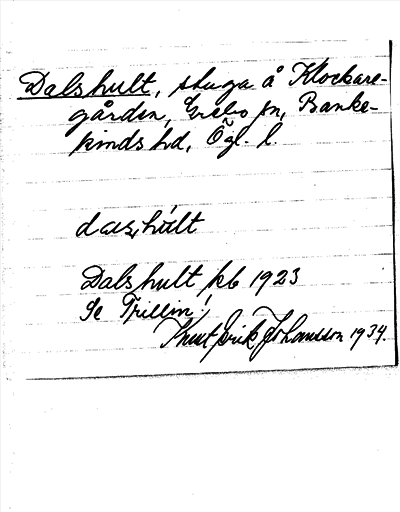 Dalshult, stuga å Klockare-
gården, Grebo sn, Banke-
kinds hd, Ög. l.
Dalshult kb 1923
Se Trillin
Knut Erik Johansson 1934.